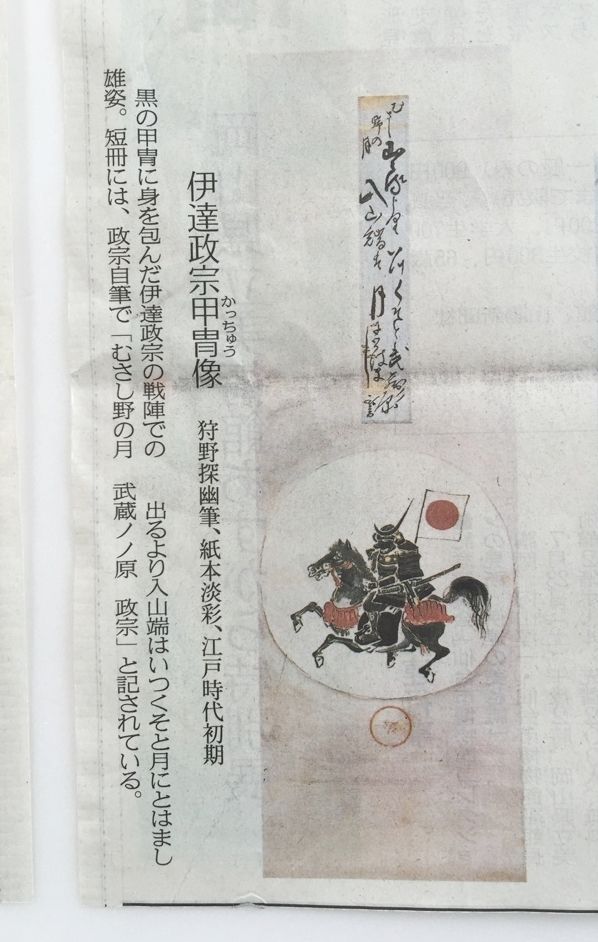 伊達政宗甲冑像
かっちゅう
狩野探幽筆、紙本淡彩、江戸時代初期
黒の甲冑に身を包んだ伊達政宗の戦陣での
雄姿。短冊には、政宗自筆で「むさし野の月
出るより入山端はいつくそと月にとはまし
武蔵ノノ原　政宗」と記されている。